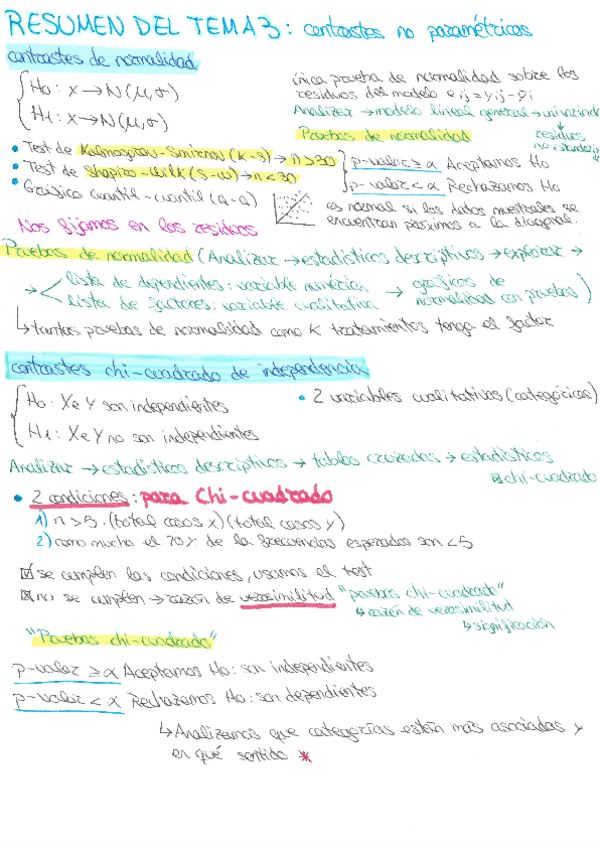 RESUMEN DEL TEMA 3: contrastes no paramétricos
contrastes de normalidad
H0: X→N(μ,σ)
H1: X→N(μ,σ)
única prueba de normalidad sobre los
residuos del modelo eij = yij - ŷi
Analizar → modelo lineal general → univariado
residuos
no estandariz
Pruebas de normalidad
• Test de Kolmogorov-Smirnov (K-S) → n>30
• Test de Shapiro-Wilk (S-W) → n<30
• Gráfico cuantil-cuantil (Q-Q)
p-valor ≥ α Aceptamos H0
p-valor < α Rechazamos H0
es normal si los datos muestrales se
encuentran próximos a la diagonal.
Nos fijamos en los residuos
Pruebas de normalidad (Analizar → estadísticos descriptivos → explorar →
→ lista de dependientes: variable numérica
lista de factores: variable cualitativa
→ gráficos de
normalidad con pruebas)
↳ tantas pruebas de normalidad como K tratamientos tenga el factor
contrastes chi-cuadrado de independencia
H0: X e Y son independientes
H1: X e Y no son independientes
• 2 variables cualitativas (categóricas)
Analizar → estadísticos descriptivos → tablas cruzadas → estadísticos
chi-cuadrado
• 2 condiciones: para Chi-cuadrado
1) n>5·(total casos x)(total casos y)
2) como mucho el % de la frecuencias esperadas son <5
se cumplen las condiciones, usamos el test
no se cumplen → razón de verosimilitud "pruebas chi-cuadrado"
↳ razón de verosimilitud
↳ significación
"Pruebas chi-cuadrado"
p-valor ≥ α Aceptamos H0: son independientes
p-valor < α Rechazamos H0: son dependientes
↳ Analizamos que categorías están más asociadas y
en qué sentido *